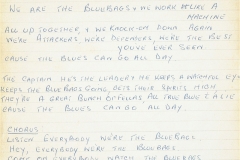 WE ARE THE BLUEBAGS & WE WORK LIKE A
MACHINE
ALL UP TOGETHER, & WE BACK-EM DOWN AGAIN
WE'RE ATTACKERS, WE'RE DEFENDERS, WE'RE THE BEST
YOU'VE EVER SEEN
CAUSE THE BLUES CAN GO ALL DAY
THE CAPTAIN HE'S THE LEADER, HE KEEPS A WATCHFUL EYE
KEEPS THE BLUEBAGS GOING, GETS THEIR SPIRITS HIGH
THEY'RE A GREAT BUNCH OF FELLAS ALL TRUE BLUE
CAUSE THE BLUES CAN GO ALL DAY
CHORUS
LISTEN EVERYBODY WE'RE THE BLUEBAGS
HEY, EVERYBODY WE'RE THE BLUEBAGS
COME ON EVERYBODY WATCH THE BLUEBAGS